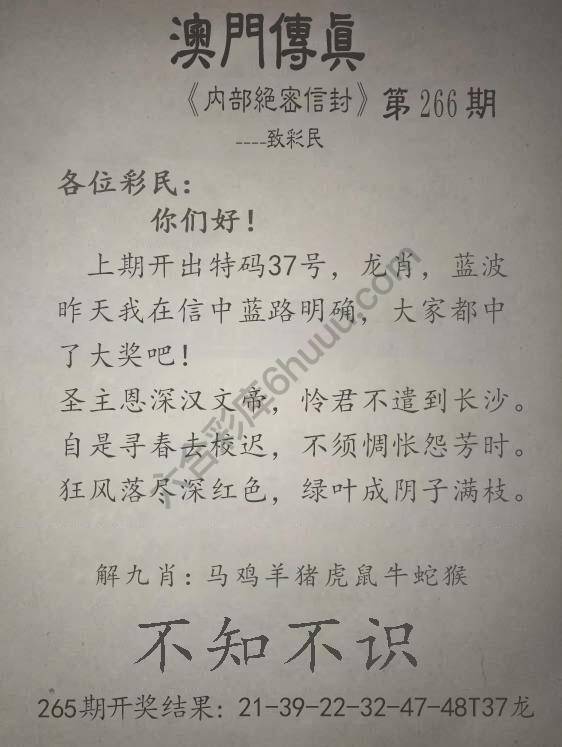 澳門傳眞
《内部絕密信封》第266期
----致彩民
各位彩民：
你们好！
上期开出特码37号，龙肖，蓝波
昨天我在信中蓝路明确，大家都中
了大奖吧！
圣主恩深汉文帝，怜君不遣到长沙。
自是寻春去校迟，不须惆怅怨芳时。
狂风落尽深红色，绿叶成阴子满枝。
六合彩库6huuu.com
解九肖：马鸡羊猪虎鼠牛蛇猴
不知不识
265期开奖结果：21-39-22-32-47-48T37龙